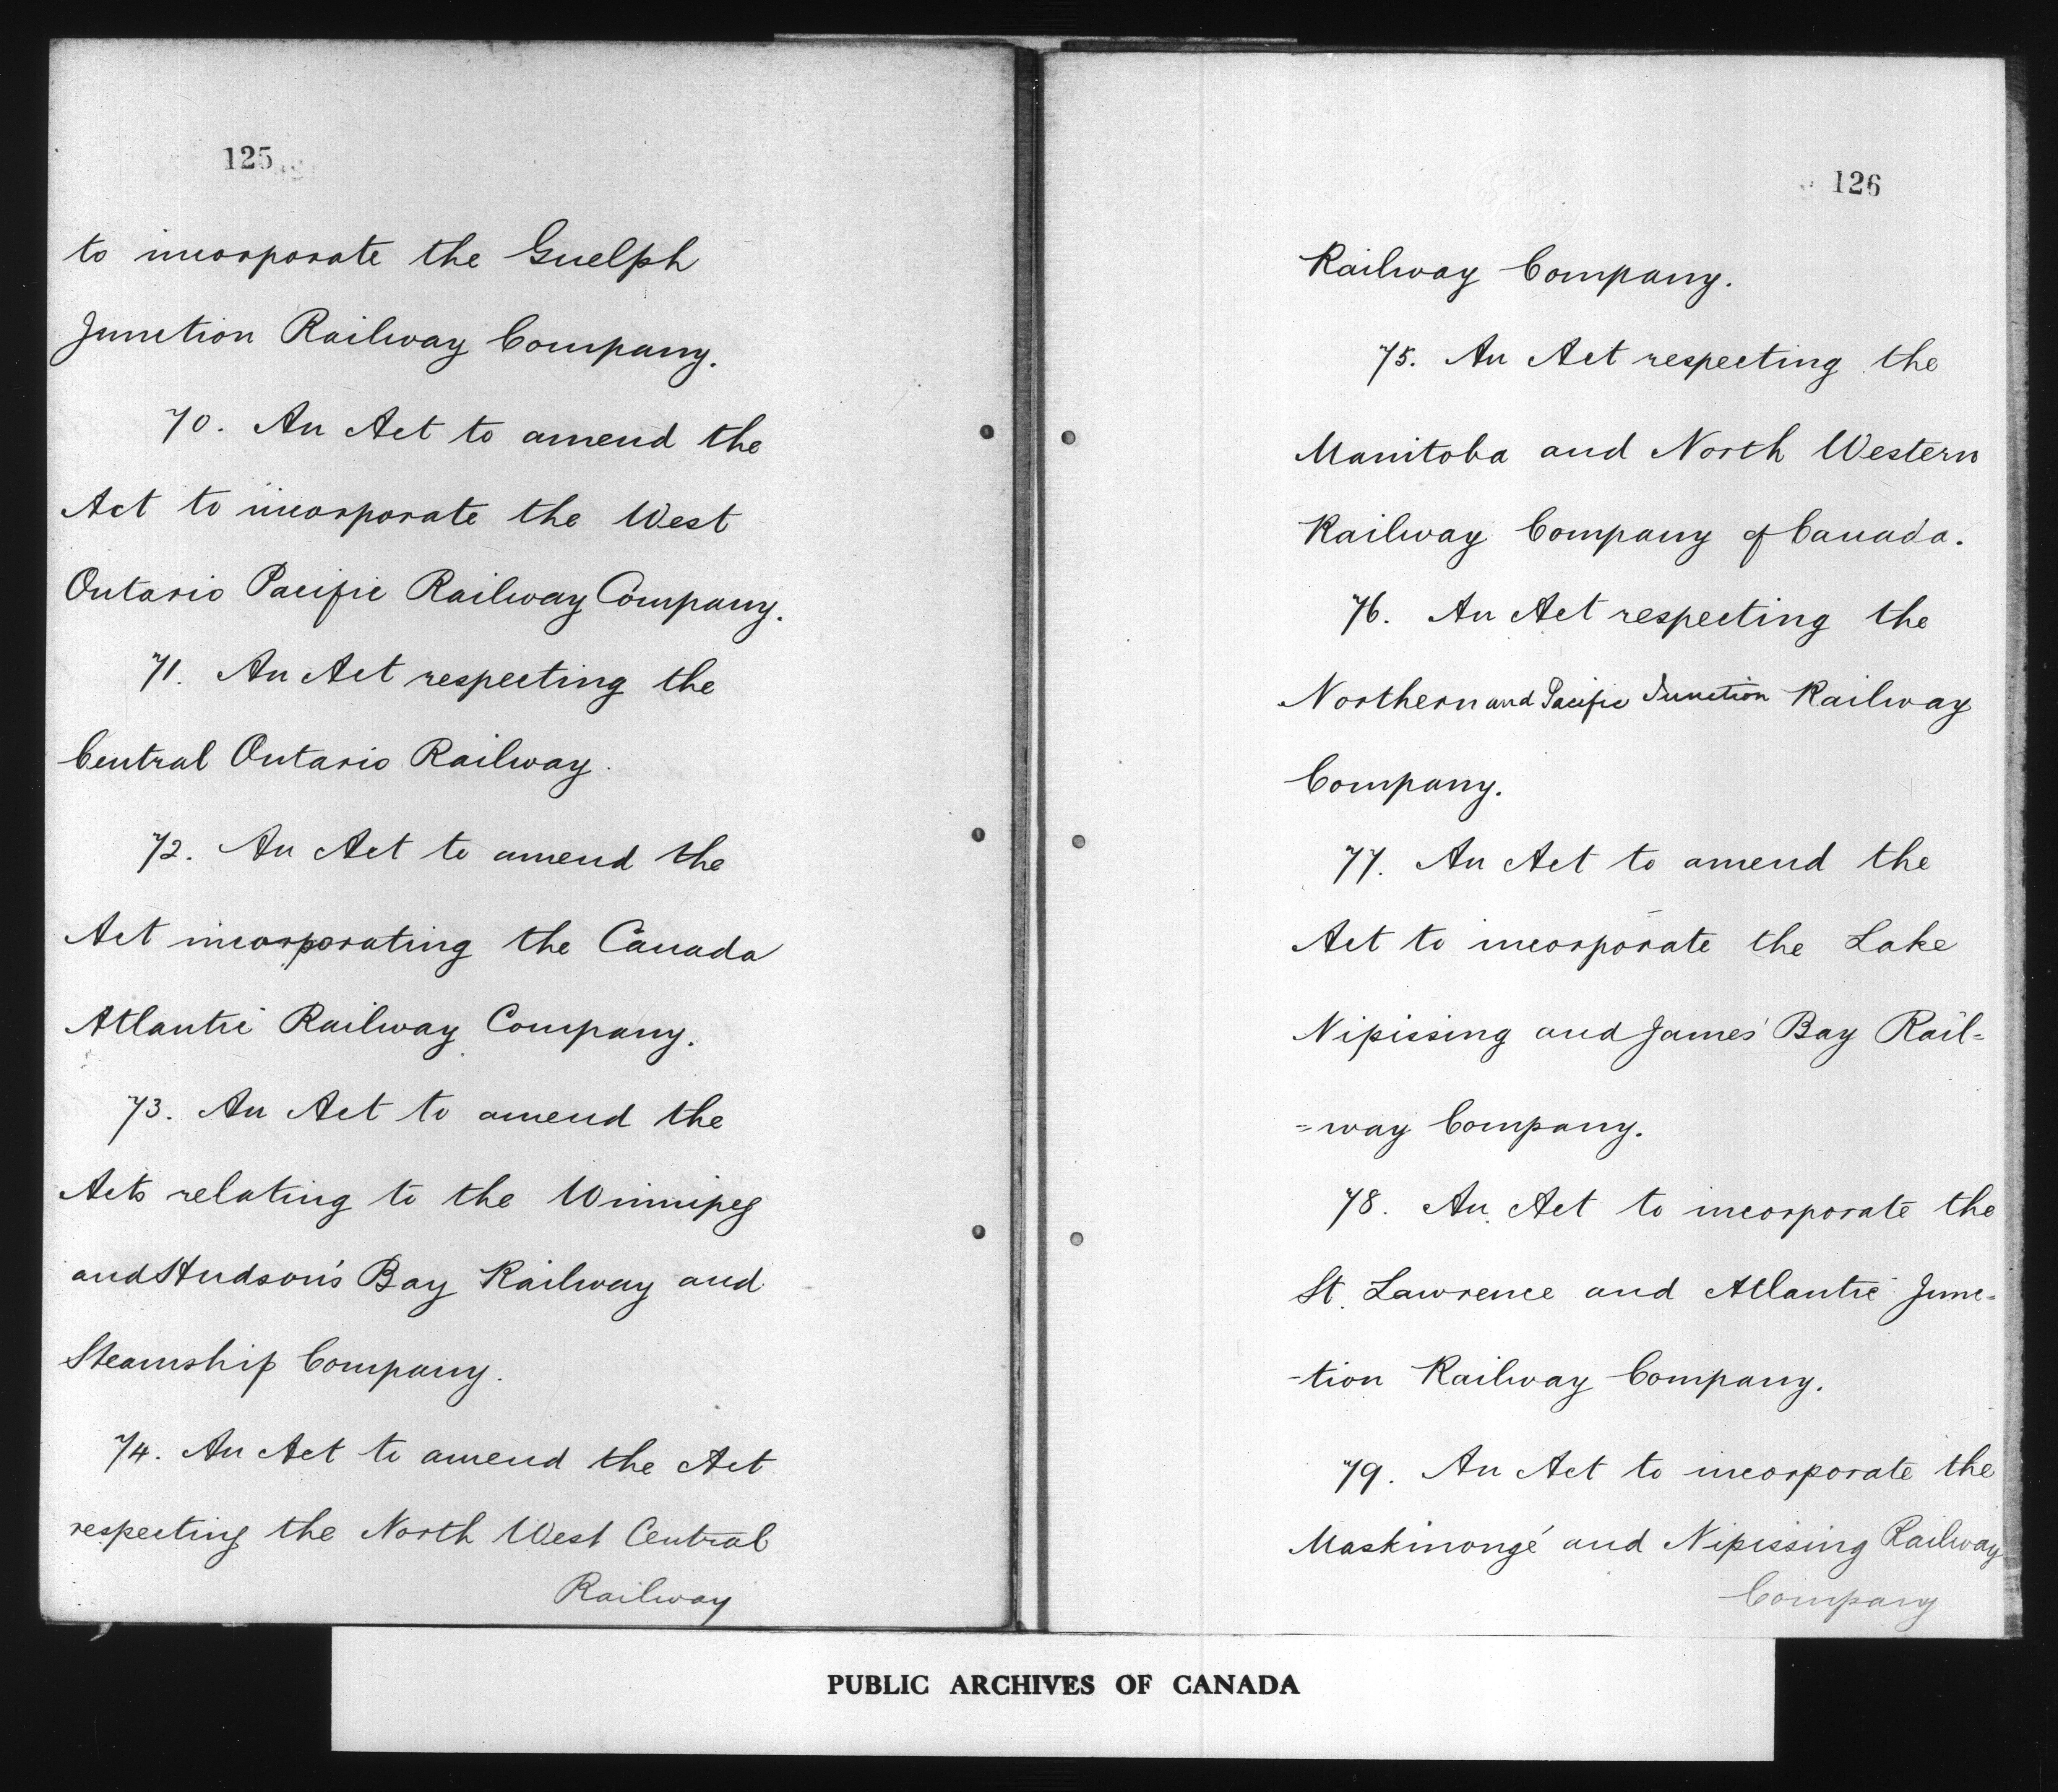 125
to incorporate the Guelph
Junction Railway Company.
70. An Act to amend the
Act to incorporate the West
Ontario Pacific Railway Company.
71. An Act respecting the
Central Ontario Railway.
72. An Act to amend the
Act incorporating the Canada
Atlantic Railway Company.
73. An Act to amend the
Acts relating to the Winnipeg
and Hudson's Bay Railway and
Steamship Company.
74. An Act to amend the Act
respecting the North West Central
Railway
126
Railway Company.
75. An Act respecting the
Manitoba and North Western
Railway Company of Canada.
76. An Act respecting the
Northern and Pacific Junction Railway
Company.
77. An Act to amend the
Act to incorporate the Lake
Nipissing and James' Bay Rail=
=way Company.
78. An Act to incorporate the
St. Lawrence and Atlantic Junc-
-tion Railway Company.
79. An Act to incorporate the
Maskinongé and Nipissing Railway
Company
PUBLIC ARCHIVES OF CANADA